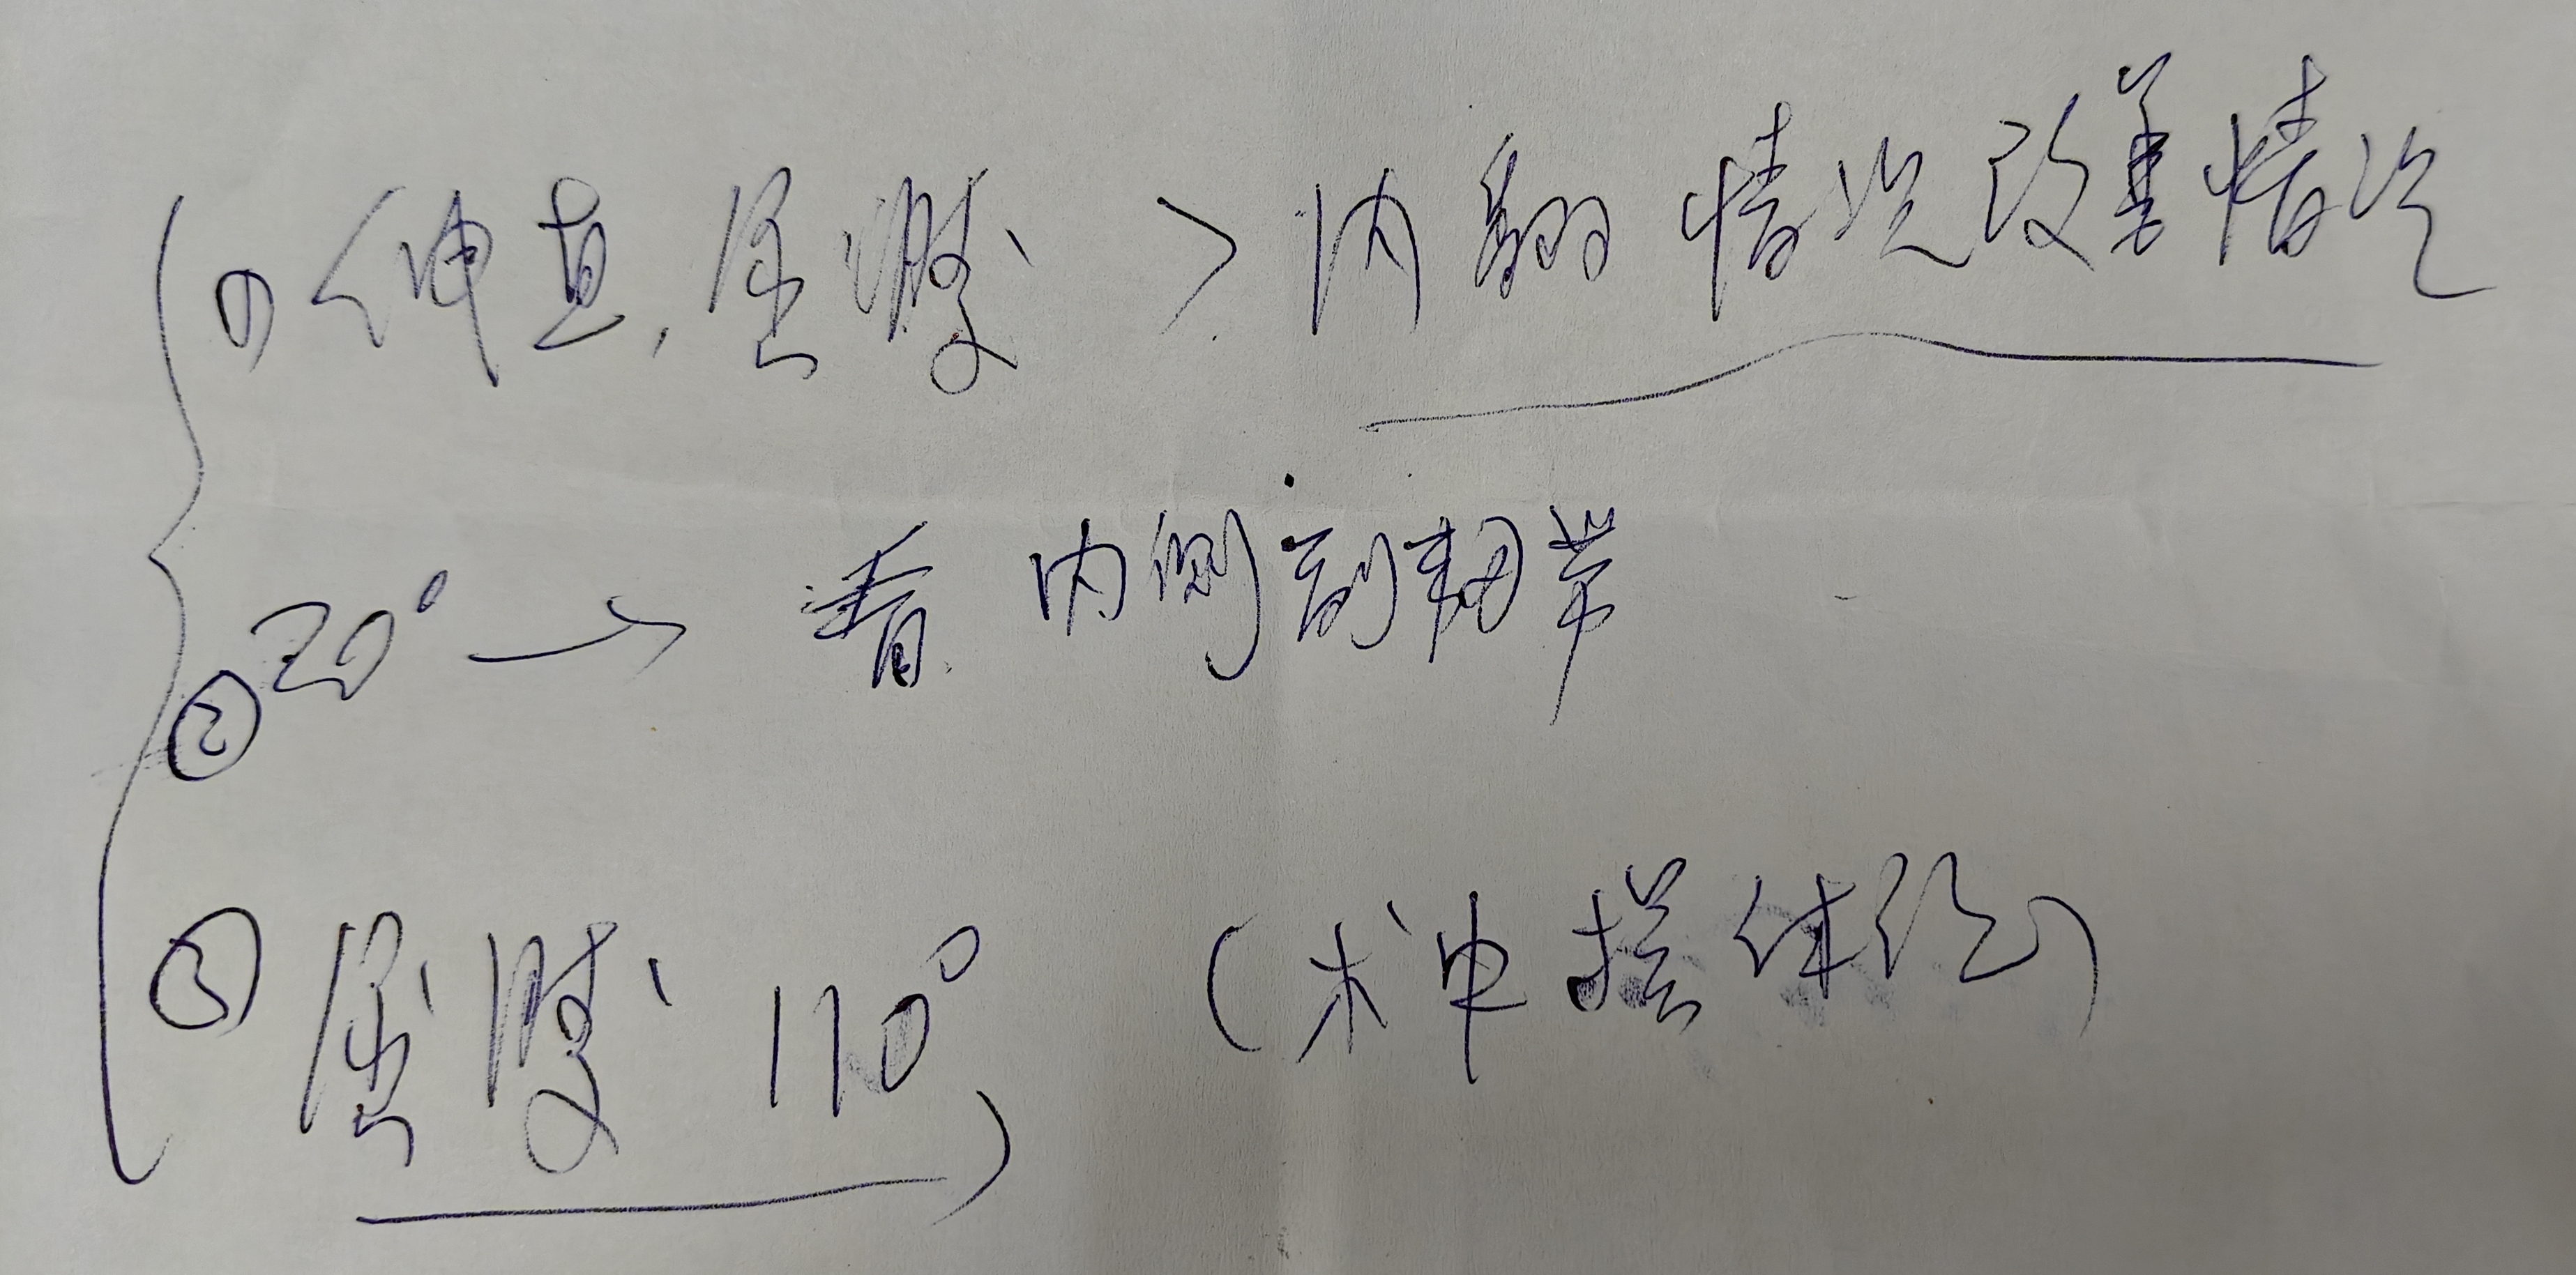 ① <伸直,屈膝> 内翻情况改善情况
② 20° → 看内侧副韧带
③ 屈膝 110° (术中搓体位)